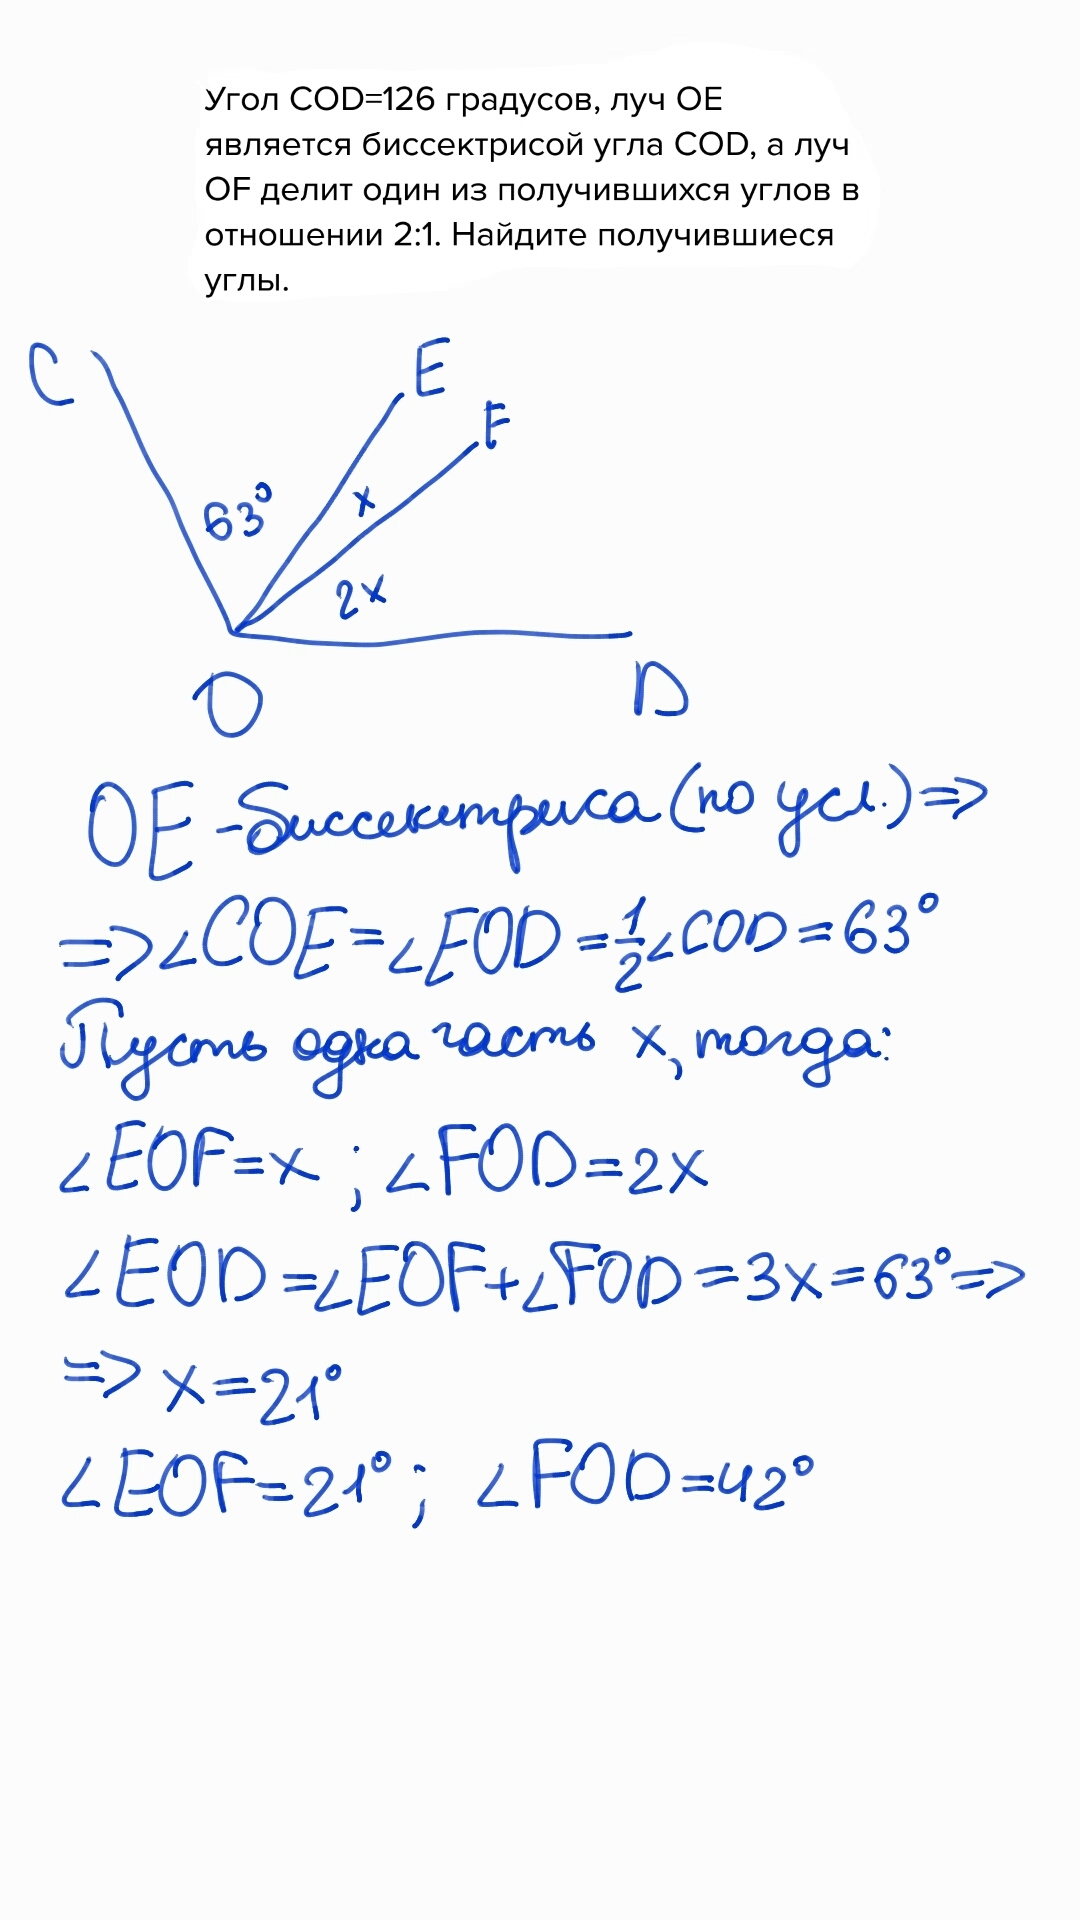 Угол COD=126 градусов, луч OE
является биссектрисой угла COD, а луч
OF делит один из получившихся углов в
отношении 2:1. Найдите получившиеся
углы.
C
E
F
63°
x
2x
O
D
OE-биссектриса (по усл.) =>
=> ∠COE = ∠EOD = 1/2 ∠COD = 63°
Пусть одна часть x, тогда:
∠EOF = x ; ∠FOD = 2x
∠EOD = ∠EOF + ∠FOD = 3x = 63° =>
=> x = 21°
∠EOF = 21° ; ∠FOD = 42°